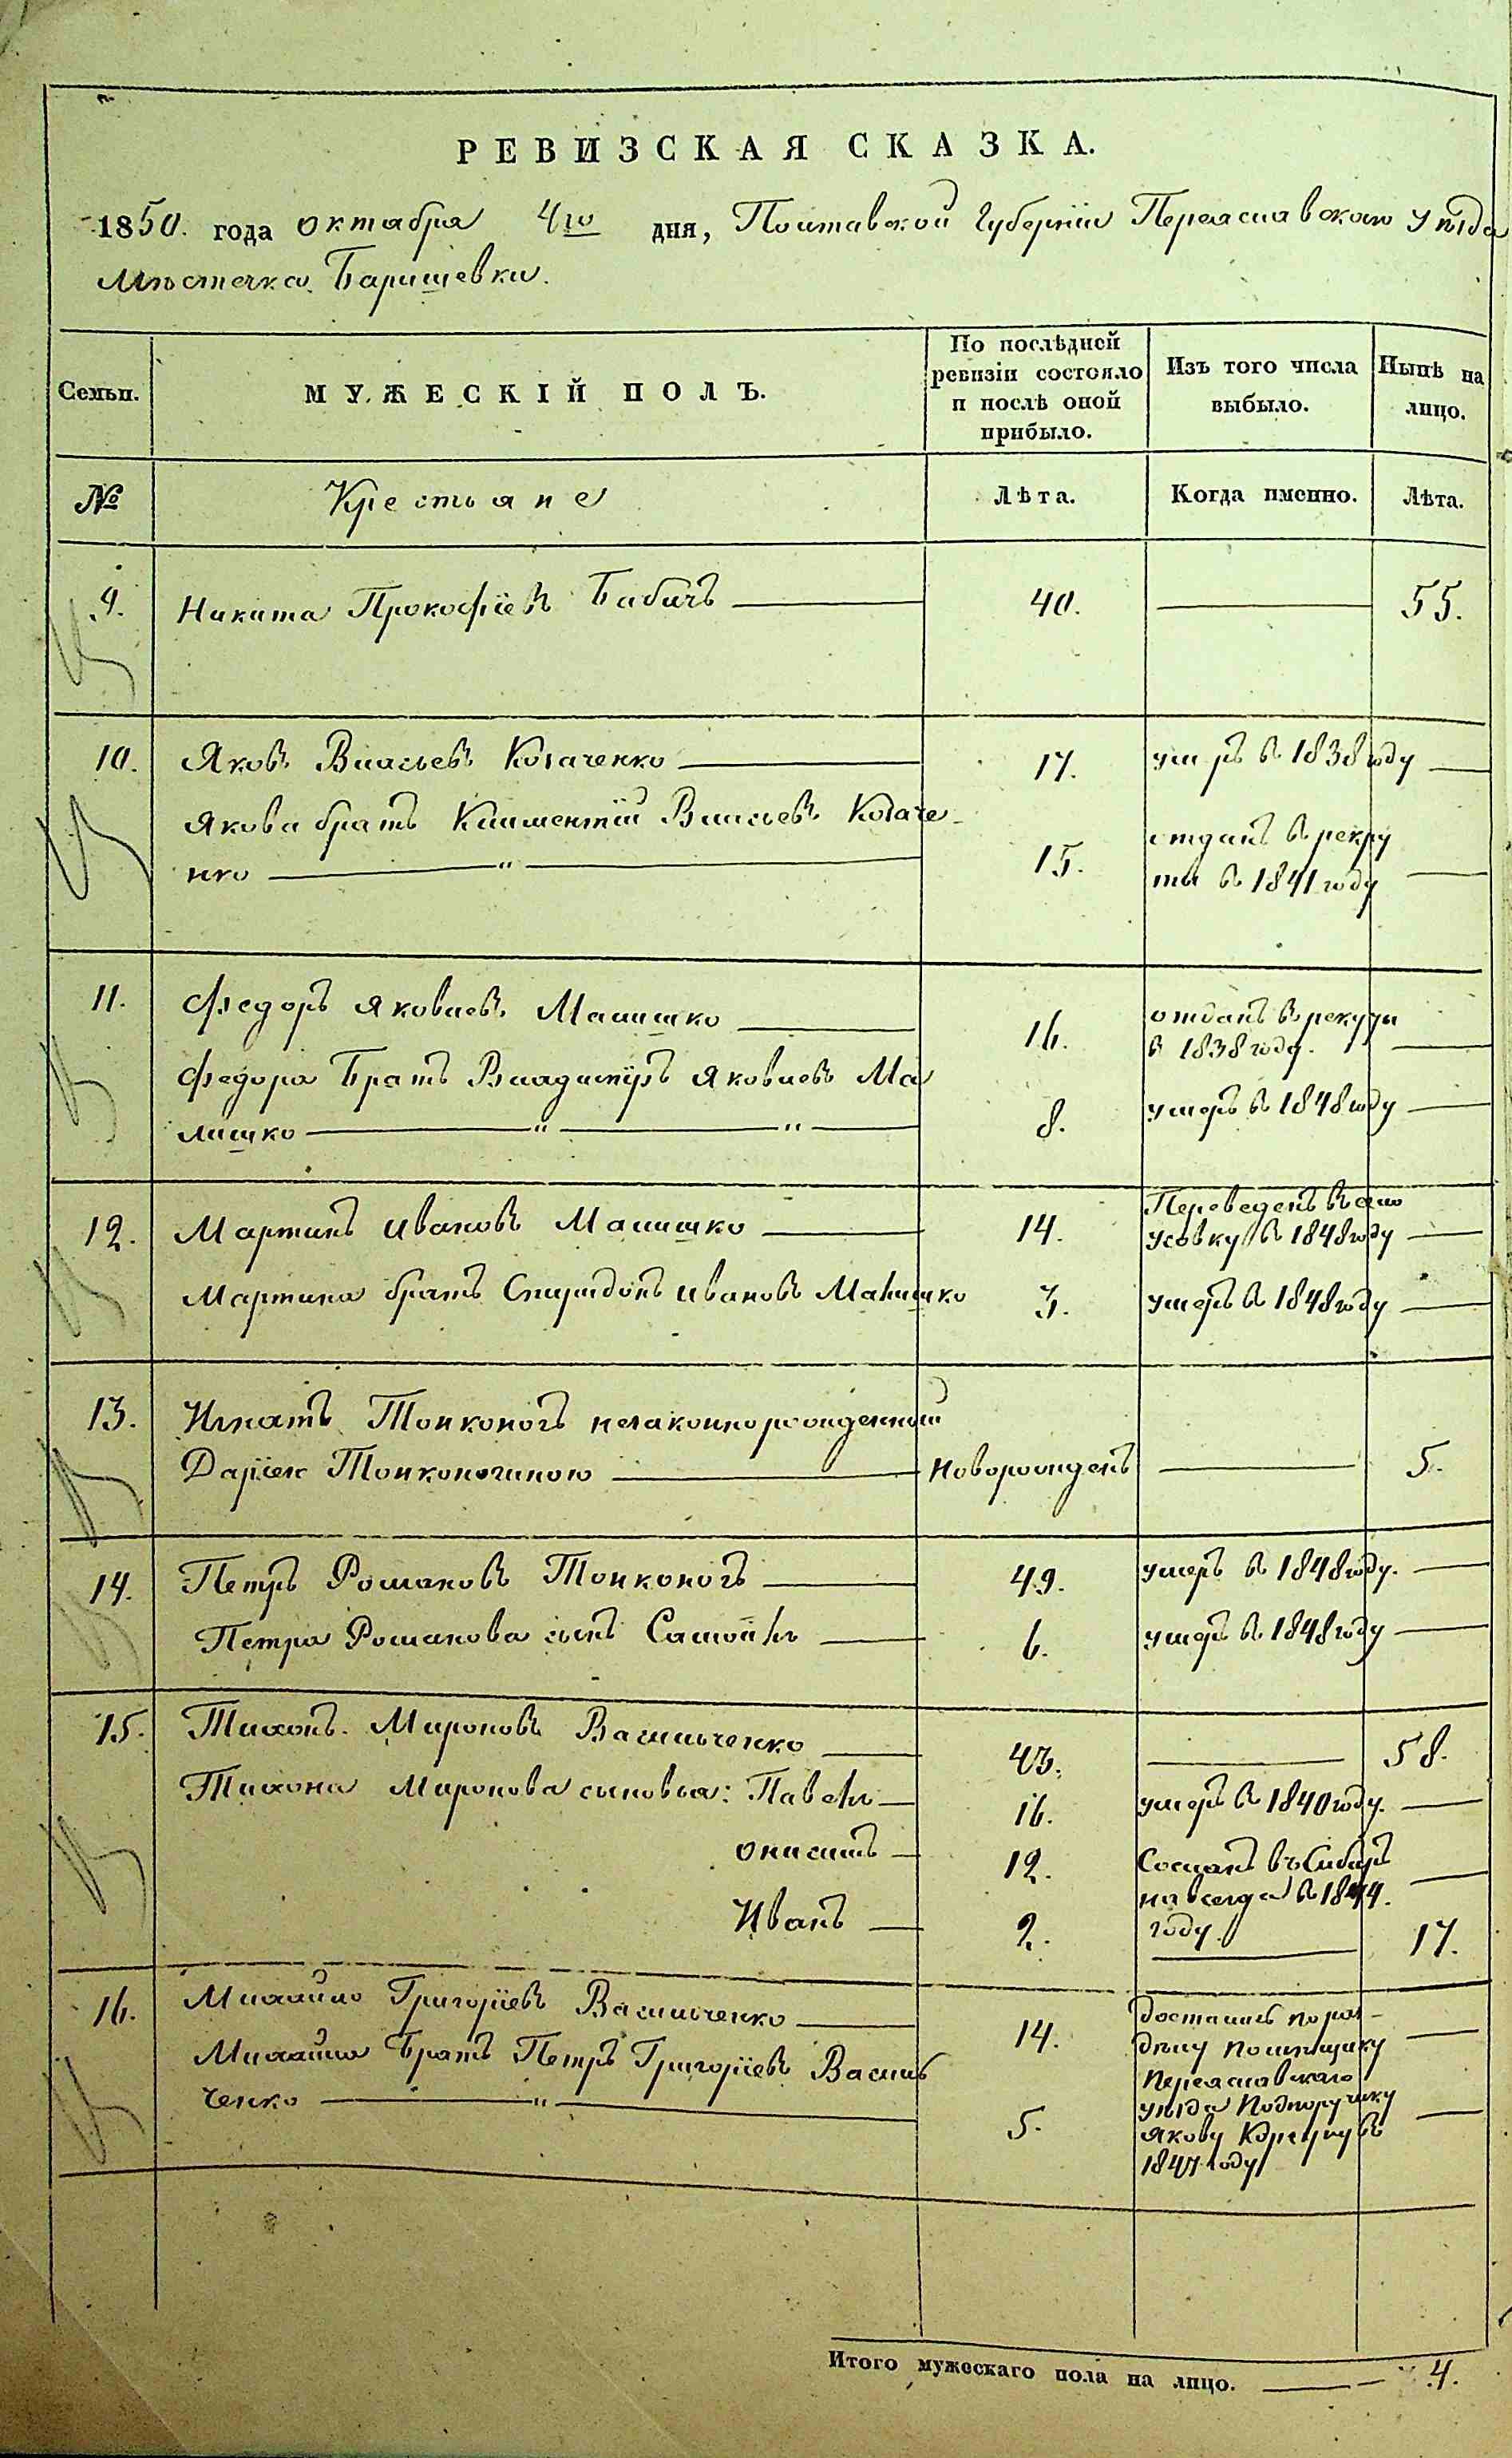 РЕВИЗСКАЯ СКАЗКА.
1850. года октабра 4го дня, Полтавской Губерніи Переяславского уѣзда
Мѣстечка Баришевки.
Семьи.
МУЖЕСКІЙ ПОЛЪ.
По послѣдней ревизіи состояло и послѣ оной прибыло.
Изъ того числа выбыло.
Нынѣ на лицо.
№
Крестьяне
Лѣта.
Когда именно.
Лѣта.
9. Никита Прокофіевъ Бабичъ 40. 55.
10. Яковъ Власьевъ Козаченко 17. умръ въ 1838 году
Якова братъ Климентій Власьевъ Козаче-
нко " 15. отданъ въ рекру
ты въ 1841 году
11. Федоръ Яковлевъ Малишко 16. отданъ въ рекуты
въ 1838 году.
Федора Братъ Владиміръ Яковлевъ Ма
лишко " " 8. умеръ въ 1848 году
12. Мартинъ Ивановъ Малишко 14. Переведенъ въ село
Усовку въ 1848 году
Мартина братъ Спиридонъ Ивановъ Малишко 3. умеръ въ 1848 году
13. Игнатъ Тонконогъ незаконнорожденный
Даріею Тонконогиною новорожденъ 5.
14. Петръ Романовъ Тонконогъ 49. умеръ въ 1848 году.
Петра Романова сынъ Самойло 6. умеръ въ 1848 году
15. Тихонъ Мироновъ Васильченко 43. 58.
Тихона Миронова сыновья: Павелъ 16. умеръ въ 1840 году.
Онисимъ 12. Сосланъ въ Сибирь
на всегда в 1844.
году.
Иванъ 2. 17.
16. Михайло Григоріевъ Васильченко 14. достались по раз-
дѣлу помѣщику
Михайла Братъ Петръ Григоріевъ Василь
ченко " 5. Переяславскаго
уѣзда Подпоручику
Якову въ
1847 году
Итого мужескаго пола на лицо. 4.